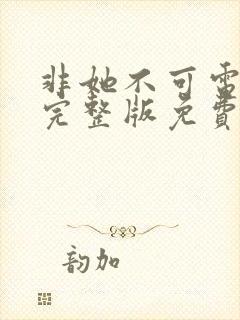 非她不可電
完整版免費
韵加